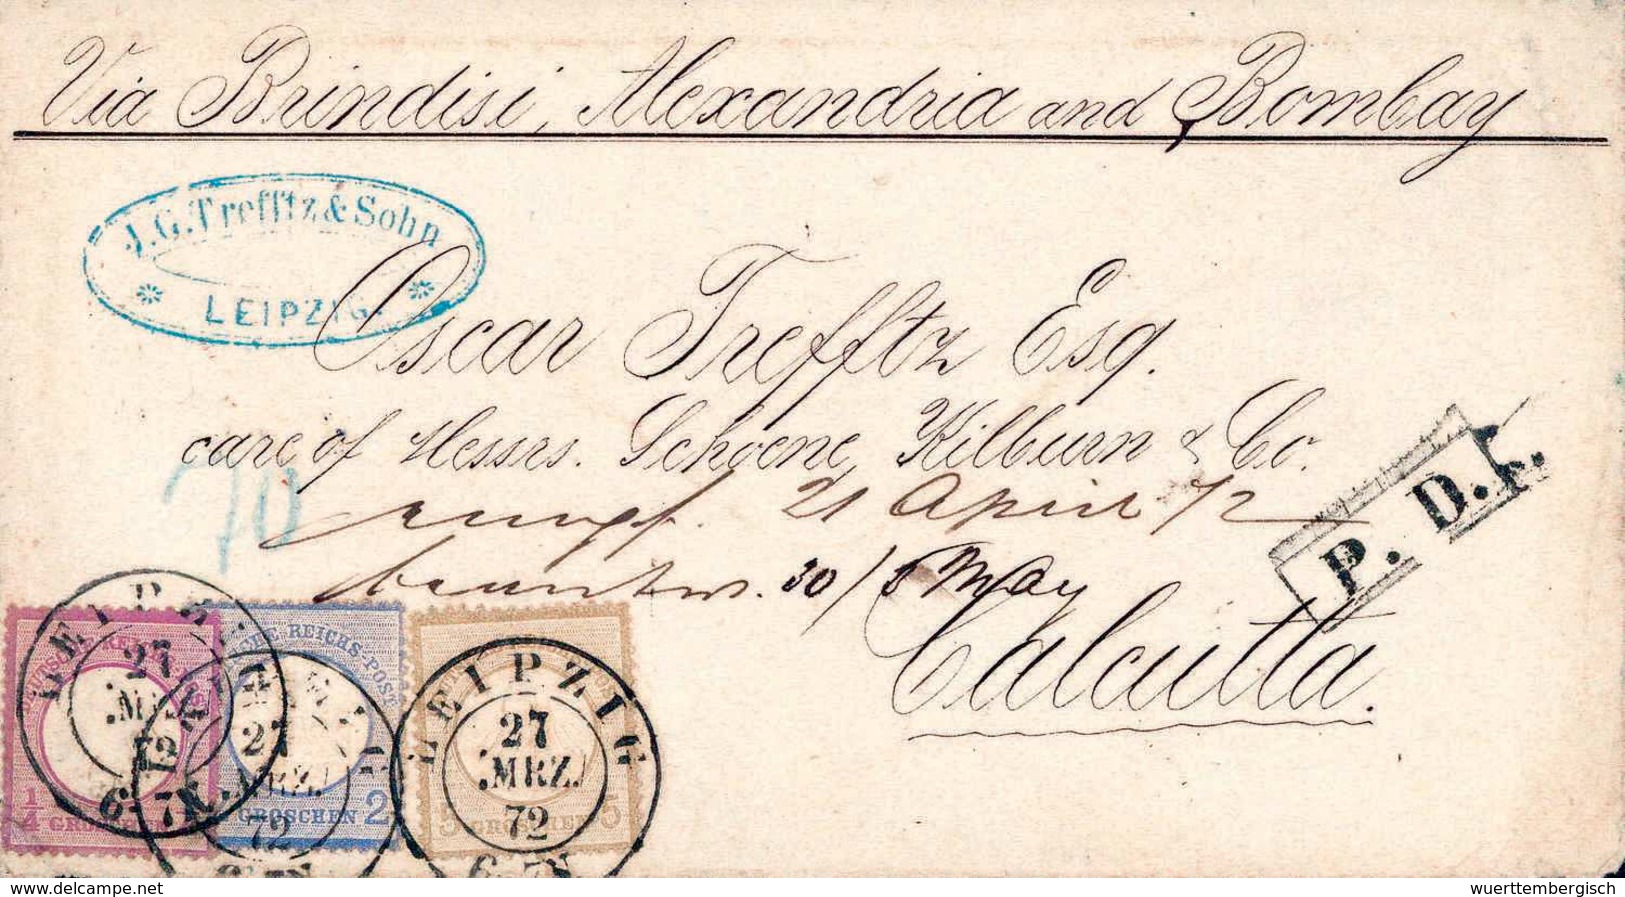 Via Brindisi, Alexandria and Bombay
J. G. Trefftz & Sohn
LEIPZIG.
Oscar Trefftz Esq.
care of Messrs. Schoene, Kilburn & Co.
70
21 April 72
30/5 May
P. D.
Calcutta.
LEIPZIG
27
MRZ.
72
6-7N.
DEUTSCHE REICHS-POST
1/4 GROSCHEN
LEIPZIG
27
.MRZ.
72
6-7N
DEUTSCHE REICHS-POST
GROSCHEN 2
LEIPZIG
27
.MRZ.
72
6-7N
5 GROSCHEN 5
www.delcampe.net
wuerttembergisch